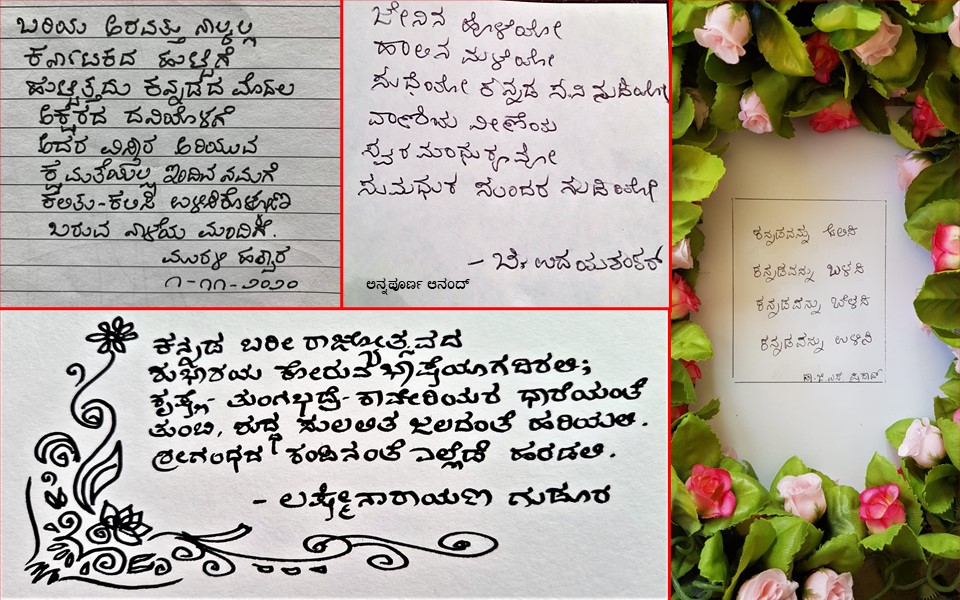 ಬರಿಯ ಅರವತ್ತು ನಾಲ್ಕಲ್ಲ
ಕರ್ನಾಟಕದ ಹುಟ್ಟಿಗೆ
ಹುಟ್ಟಿತ್ತದು ಕನ್ನಡದ ಮೊದಲ
ಅಕ್ಷರದ ದನಿಯೊಳಗೆ
ಅದರ ವಿಸ್ತಾರ ಅರಿಯುವ
ಕ್ಷಮತೆಯಿಲ್ಲ ಇಂದಿನ ನಮಗೆ
ಕಲಿತು-ಕಲಿಸಿ ಉಳಿಸಿಕೊಳ್ಳೋಣ
ಬರುವ ನಾಳೆಯ ಮಂದಿಗೆ.
ಮುರಳಿ ಹತ್ವಾರ
೧-೧೧-೨೦೨೦
ಜೇನಿನ ಹೊಳೆಯೋ
ಹಾಲಿನ ಮಳೆಯೋ
ಸುಧೆಯೋ ಕನ್ನಡ ಸವಿ ನುಡಿಯೋ
ವಾಣಿಯ ವೀಣೆಯ
ಸ್ವರ ಮಾಧುರ್ಯವೋ
ಸುಮಧುರ ಸುಂದರ ನುಡಿಯೋ
- ಚಿ. ಉದಯಶಂಕರ್
ಅನ್ನಪೂರ್ಣ ಆನಂದ್
ಕನ್ನಡ ಬರೀ ರಾಜ್ಯೋತ್ಸವದ
ಶುಭಾಶಯ ಕೋರುವ ಭಾಷೆಯಾಗದಿರಲಿ;
ಕೃಷ್ಣ- ತುಂಗಭದ್ರೆ- ಕಾವೇರಿಯರ ಧಾರೆಯಂತೆ
ತುಂಬಿ, ಶುದ್ಧ ಸುಲಲಿತ ಜಲದಂತೆ ಹರಿಯಲಿ.
ಶ್ರೀಗಂಧದ ಕಂಪಿನಂತೆ ಎಲ್ಲೆಡೆ ಹರಡಲಿ.
- ಲಕ್ಷ್ಮೀನಾರಾಯಣ ಗುಡೂರ
ಕನ್ನಡವನ್ನು ಕಲಿಸಿ
ಕನ್ನಡವನ್ನು ಬಳಸಿ
ಕನ್ನಡವನ್ನು ಬೆಳಸಿ
ಕನ್ನಡವನ್ನು ಉಳಿಸಿ
ಪ್ರಸಾದ್